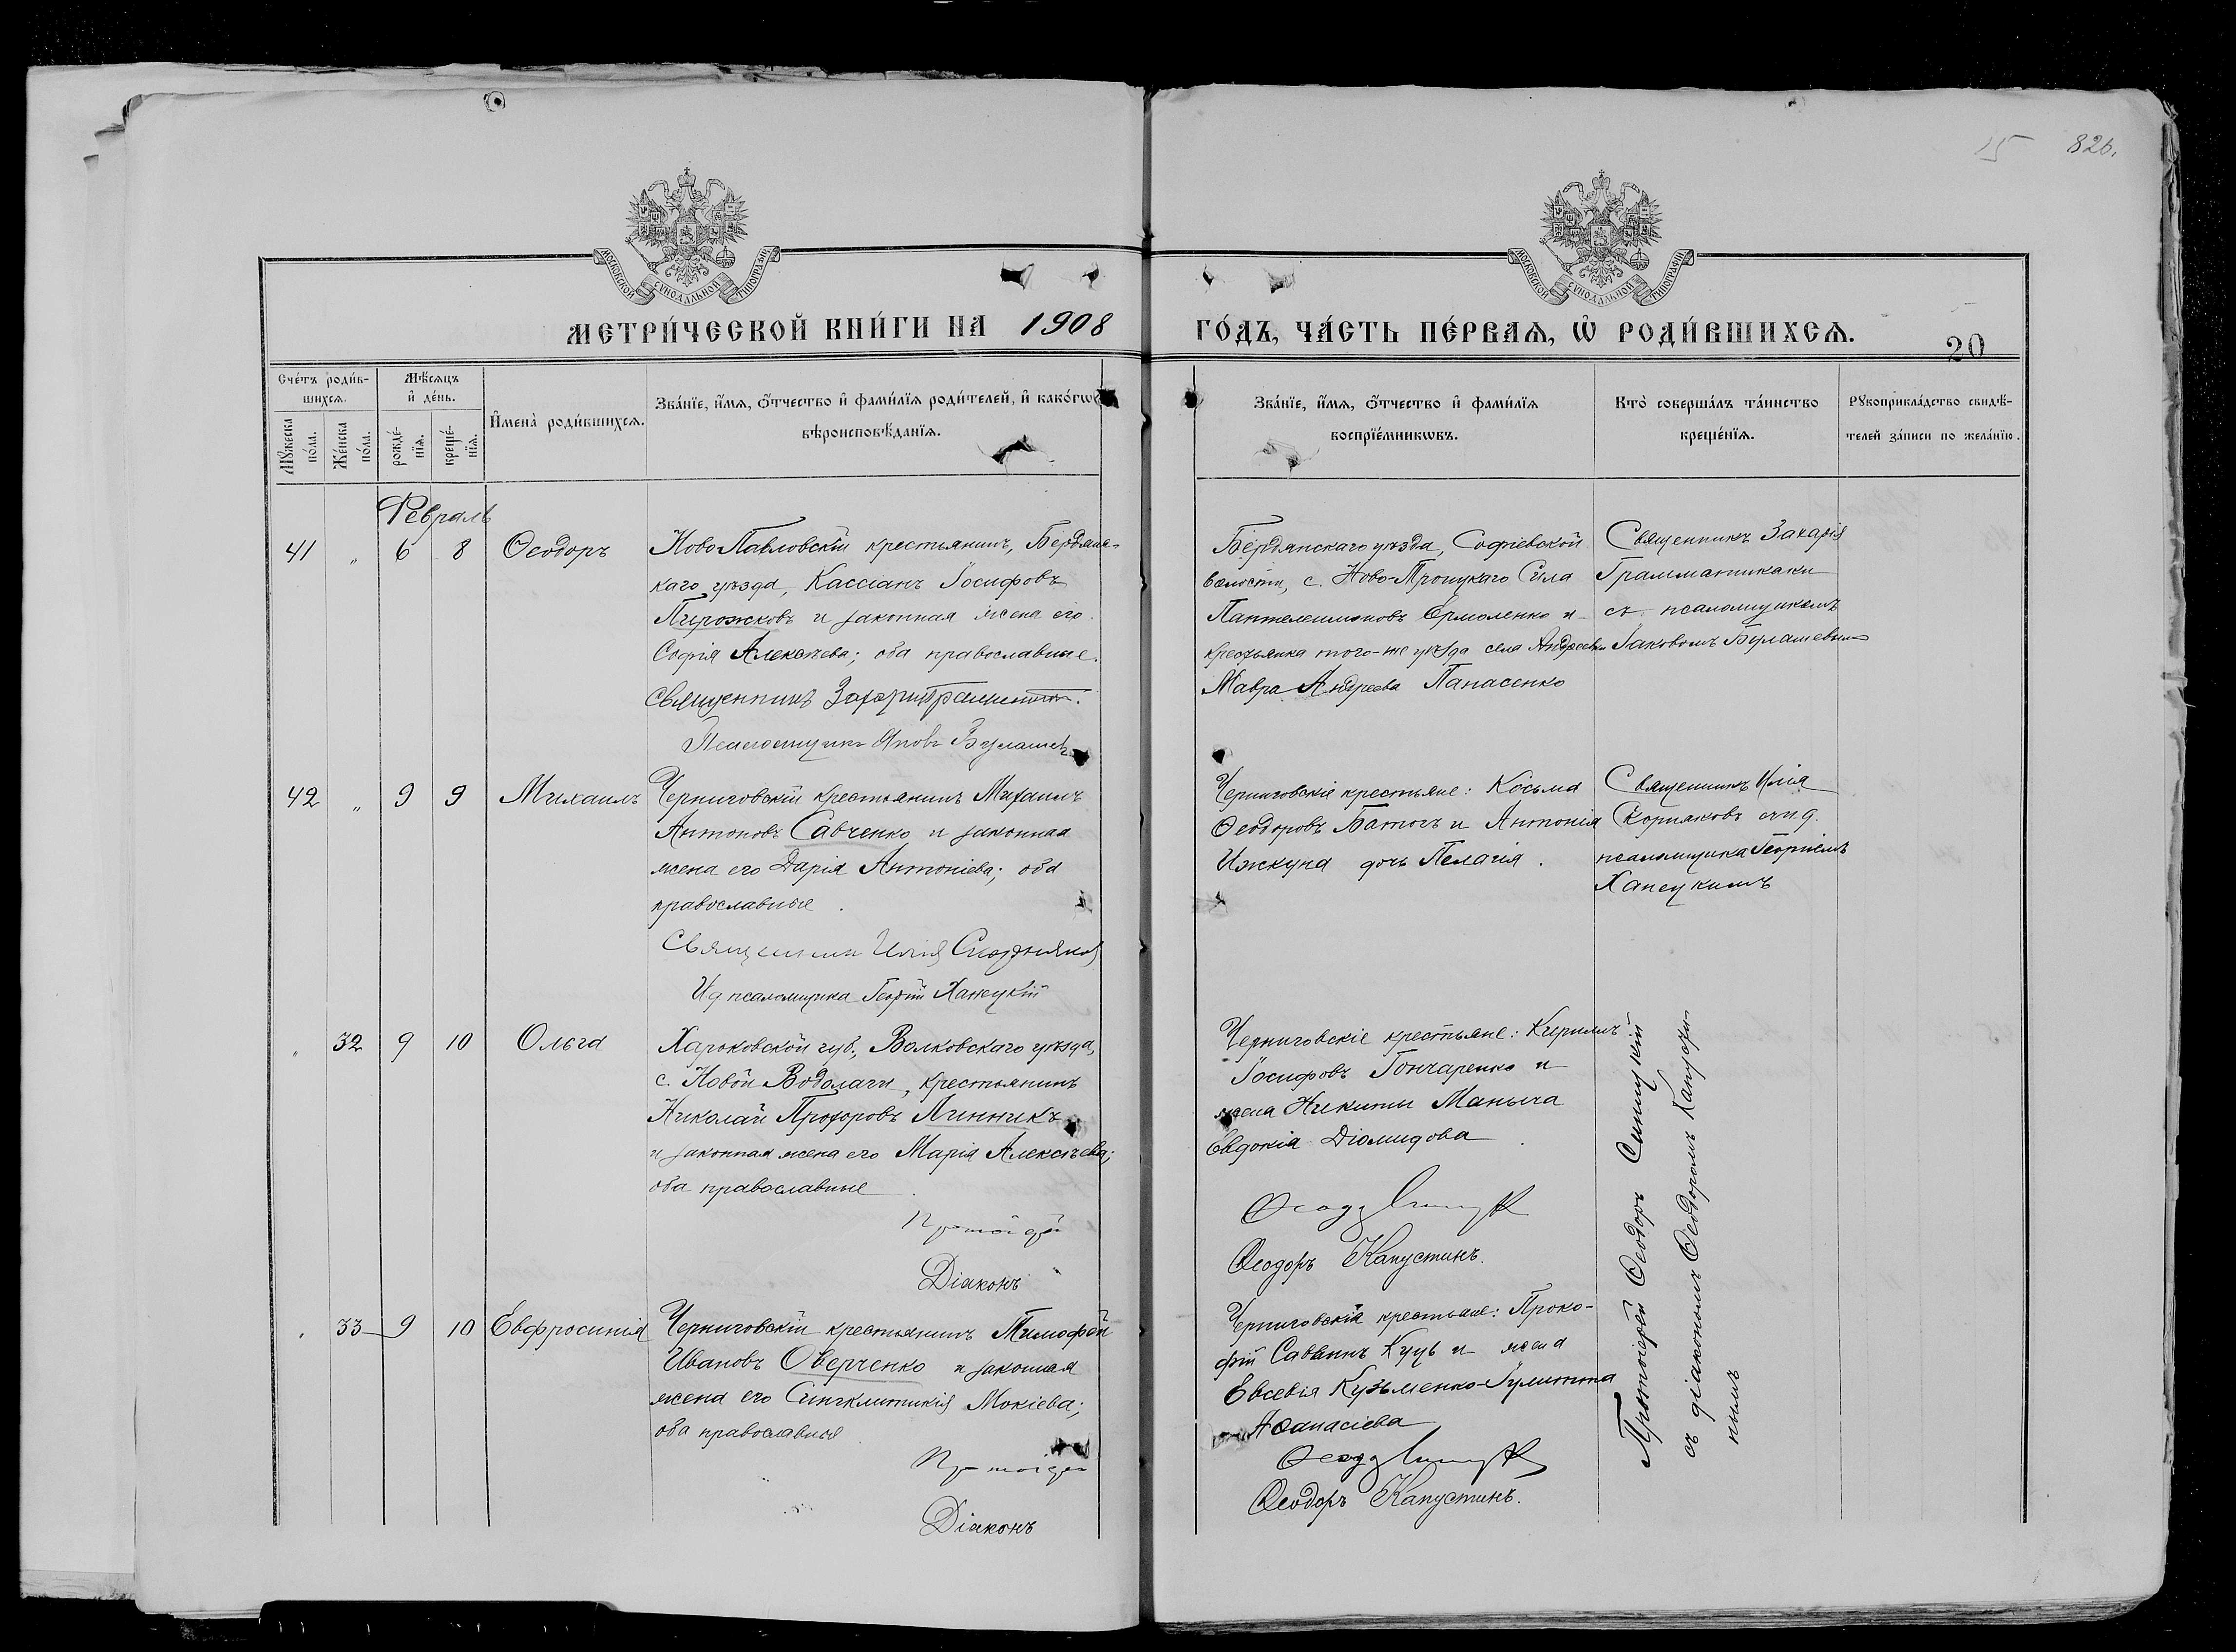 15 826.
МОСКОВСКОЙ СѴНОДАЛЬНОЙ ТИПОГРАФІИ
МОСКОВСКОЙ СѴНОДАЛЬНОЙ ТИПОГРАФІИ
МЕТРИ́ЧЕСКОЙ КНИ́ГИ НА 1908
ГО́ДЪ, ЧА́СТЬ ПЕ́РВАѦ, Ѡ҆ РОДИ́ВШИХСѦ.
20
Сче́тъ роди́в-
шихсѧ.
Мꙋ́жеска
по́ла.
Же́нска
по́ла.
Мѣ́сѧцъ
и҆ де́нь.
рожде́-
нїѧ.
креще́-
нїѧ.
И҆мена̀ роди́вшихсѧ.
Зва́нїе, и҆́мѧ, ѻ҆́тчество и҆ фами́лїѧ роди́телей, и҆ како́гѡ
вѣроисповѣ́данїѧ.
Зва́нїе, и҆́мѧ, ѻ҆́тчество и҆ фами́лїѧ
воспрїе́мникѡвъ.
Кто̀ соверша́лъ та́инство
креще́нїѧ.
Рꙋкоприкла́дство свидѣ́-
телей за́писи по жела́нїю.
Февраль
41 „ 6 8 Ѳеодоръ
Ново Павловскій крестьянинъ, Бердянс-
каго уѣзда, Кассіанъ Іосифовъ
Пирожковъ и законная жена его
Софія Алексѣева; оба православные.
Священникъ
Псаломщикъ Яковъ
Бердянскаго уѣзда, Софіевской
волости, с. Ново-Троицкаго Сила
Пантелеимоновъ Ермоленко и
крестьянка того-же уѣзда села Андреевки
Мавра Андреева Панасенко
Священникъ Захарія
Грамматикаки
съ псаломщикомъ
Іаковомъ
42 „ 9 9 Михаилъ
Черниговскій крестьянинъ Михаилъ
Антоновъ Савченко и законная
жена его Дарія Антоніева; оба
православные.
Священникъ Илія Скорняковъ
Ид псаломщика Георгій Ханецкій
Черниговскіе крестьяне: Косьма
Ѳеодоровъ Батогъ и Антонія
Ижкуна дочь Пелагія.
Священникъ Илія
Скорняковъ с и. д.
псаломщика Георгіемъ
Ханецкимъ
„ 32 9 10 Ольга
Харьковской губ., Волковскаго уѣзда,
с. Новой Водолаги, крестьянинъ
Николай Прохоровъ Линникъ
и законная жена его Марія Алексѣева;
оба православные.
Протоіерей
Діаконъ
Черниговскіе крестьяне: Кириллъ
Іосифовъ Гончаренко и
жена Никиты Маныча
Евдокія Діомидова.
Ѳеодоръ Капустинъ.
Протоіерей Ѳеодоръ Синицкій
съ діакономъ Ѳеодоромъ Капусти-
нымъ
„ 33 9 10 Евфросинія
Черниговскій крестьянинъ Тимофей
Ивановъ Оверченко и законная
жена его Синклитикія Мокіева;
оба православные.
Протоіерей
Діаконъ
Черниговскіе крестьяне: Проко-
фій Саввинъ Куць и жена
Евсевія Кузьменко Іулитта
Аѳанасіева
Ѳеодоръ Капустинъ.